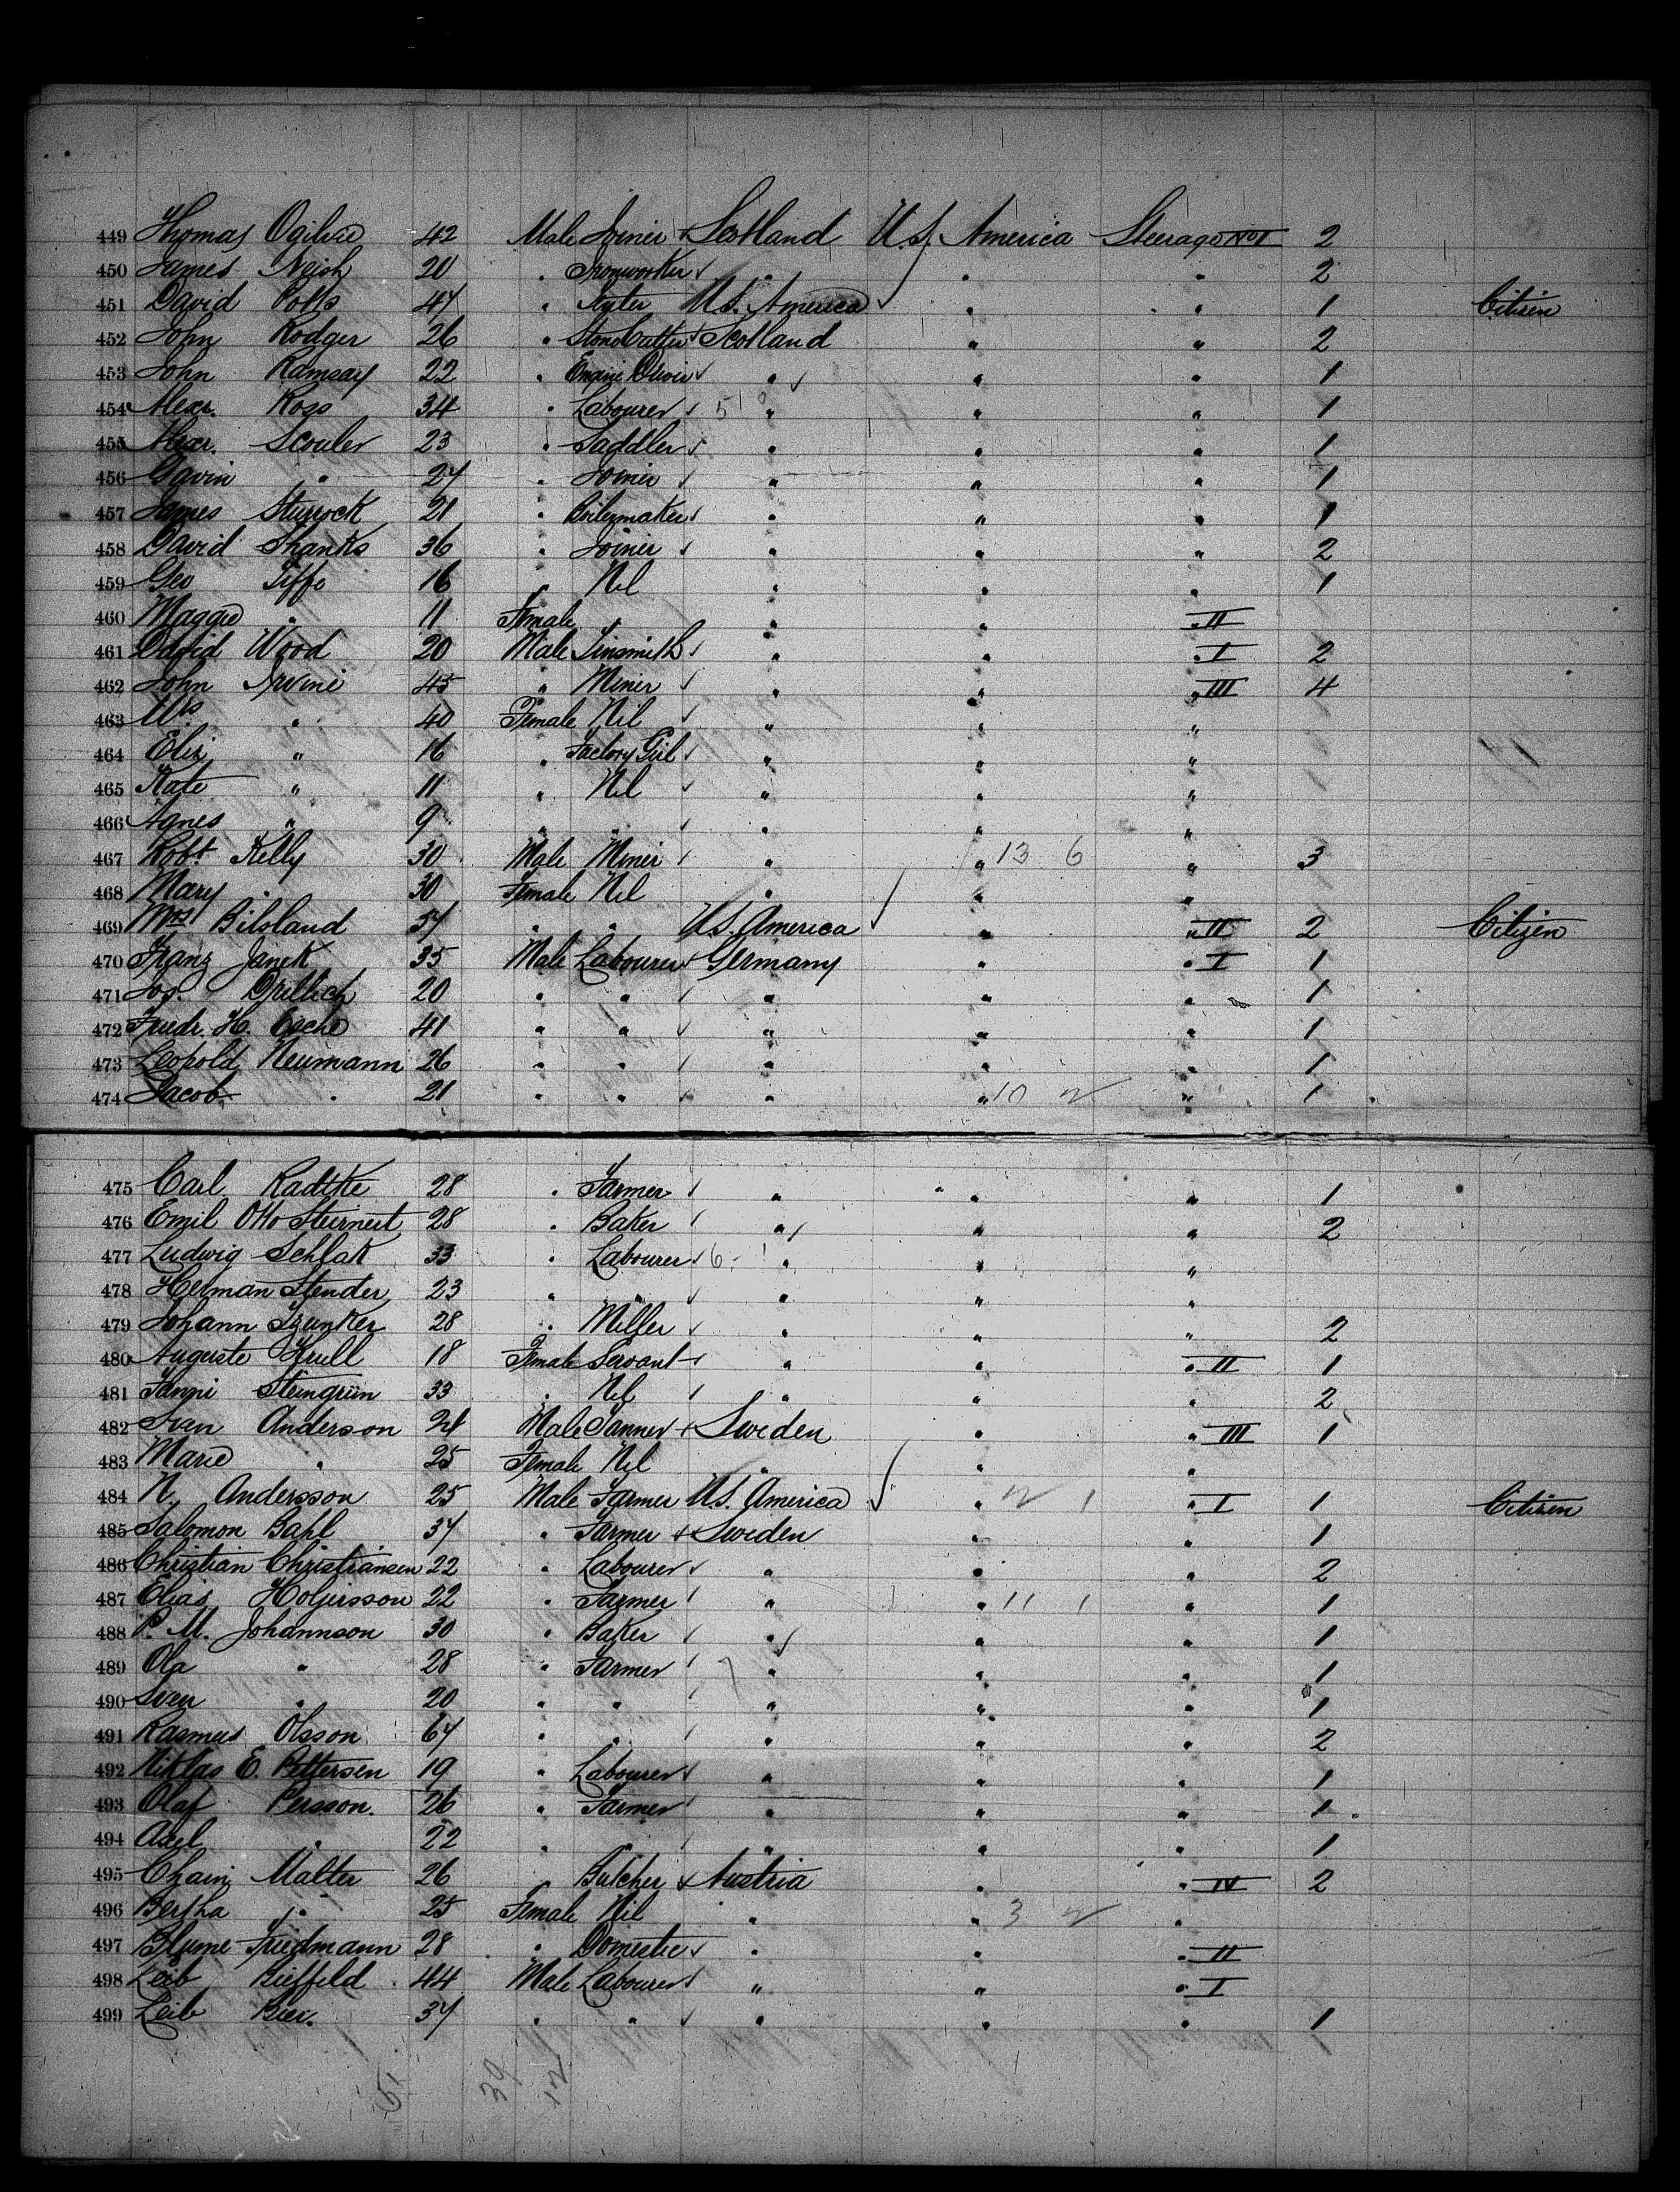 449 Thomas Ogilvie 42 Male Joiner Scotland U.S. America Steerage No I 2
450 James Neish 20 " Ironworker " " " 2
451 David Potts 47 " U.S. America " " 1 Citizen
452 John Rodger 26 " Stone Cutter Scotland " " 2
453 John Ramsay 22 " Engine Driver " " " 1
454 Alexr. Ross 34 " Labourer 5 " " " 1
455 Alexr. Scouler 23 " Saddler " " " 1
456 Gavin " 27 " Joiner " " " 1
457 James Sturrock 21 " Boilermaker " " " 1
458 David Shanks 36 " Joiner " " " 2
459 Geo Tiffe 16 " Nil " " " 1
460 Maggie " 11 Female " " " " II
461 David Wood 20 Male Tinsmith " " " I 2
462 John Irvine 45 " Miner " " " III 4
463 Mrs " 40 Female Nil " " "
464 Eliz " 16 " Factory Girl " " "
465 Kate " 11 " Nil " " "
466 Agnes " 9 " " " " "
467 Robt. Kelly 30 Male Miner " " 13 6 " 3
468 Mary " 30 Female Nil " " "
469 Mrs Bilsland 37 " " U.S. America " " II 2 Citizen
470 Franz Janek 35 Male Labourer Germany " " I 1
471 Jos. Drillich 20 " " " " " 1
472 Friedr. H. Esche 41 " " " " " 1
473 Leopold Neumann 26 " " " " " 1
474 Jacob " 21 " " " " 10 2 " 1
475 Carl Radtke 28 " Farmer " " " 1
476 Emil Otto Steinert 28 " Baker " " " 2
477 Ludwig Schlak 33 " Labourer 6 " " "
478 Herman Stender 23 " " " " "
479 Johann Szunker 28 " Miller " " " 2
480 Auguste Krull 18 Female Servant " " " II 1
481 Fanni Steingrün 33 " Nil " " " 2
482 Sven Anderson 24 Male Tanner Sweden " " III 1
483 Marie " 25 Female Nil " " "
484 N. Andersson 25 Male Farmer U.S. America " 2 1 " I 1 Citizen
485 Salomon Bahl 37 " Farmer Sweden " " 1
486 Christian Christiansen 22 " Labourer " " " 2
487 Elias Holgersson 22 " Farmer " " 11 1 " 1
488 P. M. Johannson 30 " Baker " " " 1
489 Ola " 28 " Farmer 7 " " " 1
490 Sven " 20 " " " " " 1
491 Rasmus Olsson 67 " " " " " 2
492 Niklas E. Pettersen 19 " Labourer " " " 1
493 Olaf Persson. 26 " Farmer " " " 1
494 Axel " 22 " " " " " 1
495 Chaim Malter 26 Butcher Austria " " IV 2
496 Bertha " 25 Female Nil " " 3 2 "
497 Blume Friedmann 28 " Domestic " " " II
498 Leib Bieffeld 44 Male Labourer " " " I
499 Leib Bier. 37 " " " " " 1
51 39 12